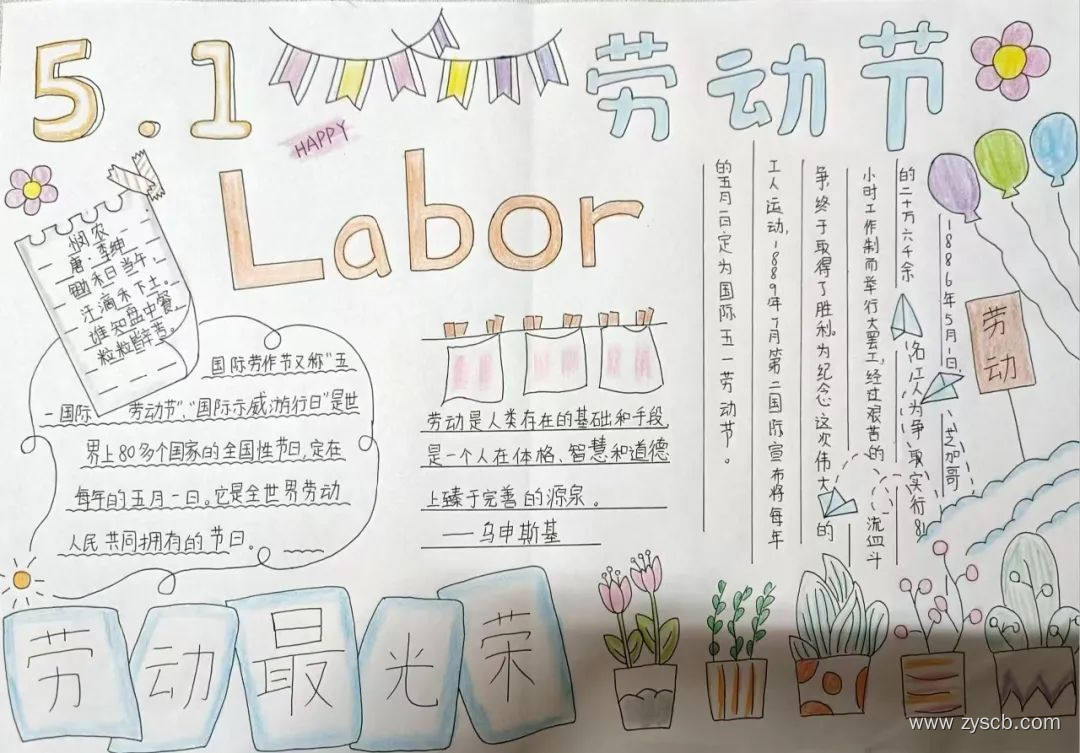 5.1
HAPPY
劳动节
Labor
悯农
唐·李绅
锄禾日当午,
汗滴禾下土。
谁知盘中餐,
粒粒皆辛苦。
国际劳作节又称"五
一国际劳动节"、"国际示威游行日"是世
界上80多个国家的全国性节日,定在
每年的五月一日。它是全世界劳动
人民共同拥有的节日。
劳动是人类存在的基础和手段
是一个人在体格、智慧和道德
上臻于完善的源泉。
——乌申斯基
1886年5月1日,芝加哥
的二十万六千余名工人为争取实行8
小时工作制而举行大罢工,经过艰苦的流血斗
争,终于取得了胜利。为纪念这次伟大的
工人运动,1889年7月第二国际宣布将每年
的五月一日定为国际五一劳动节。
劳动
劳动最光荣
www.zyscb.com